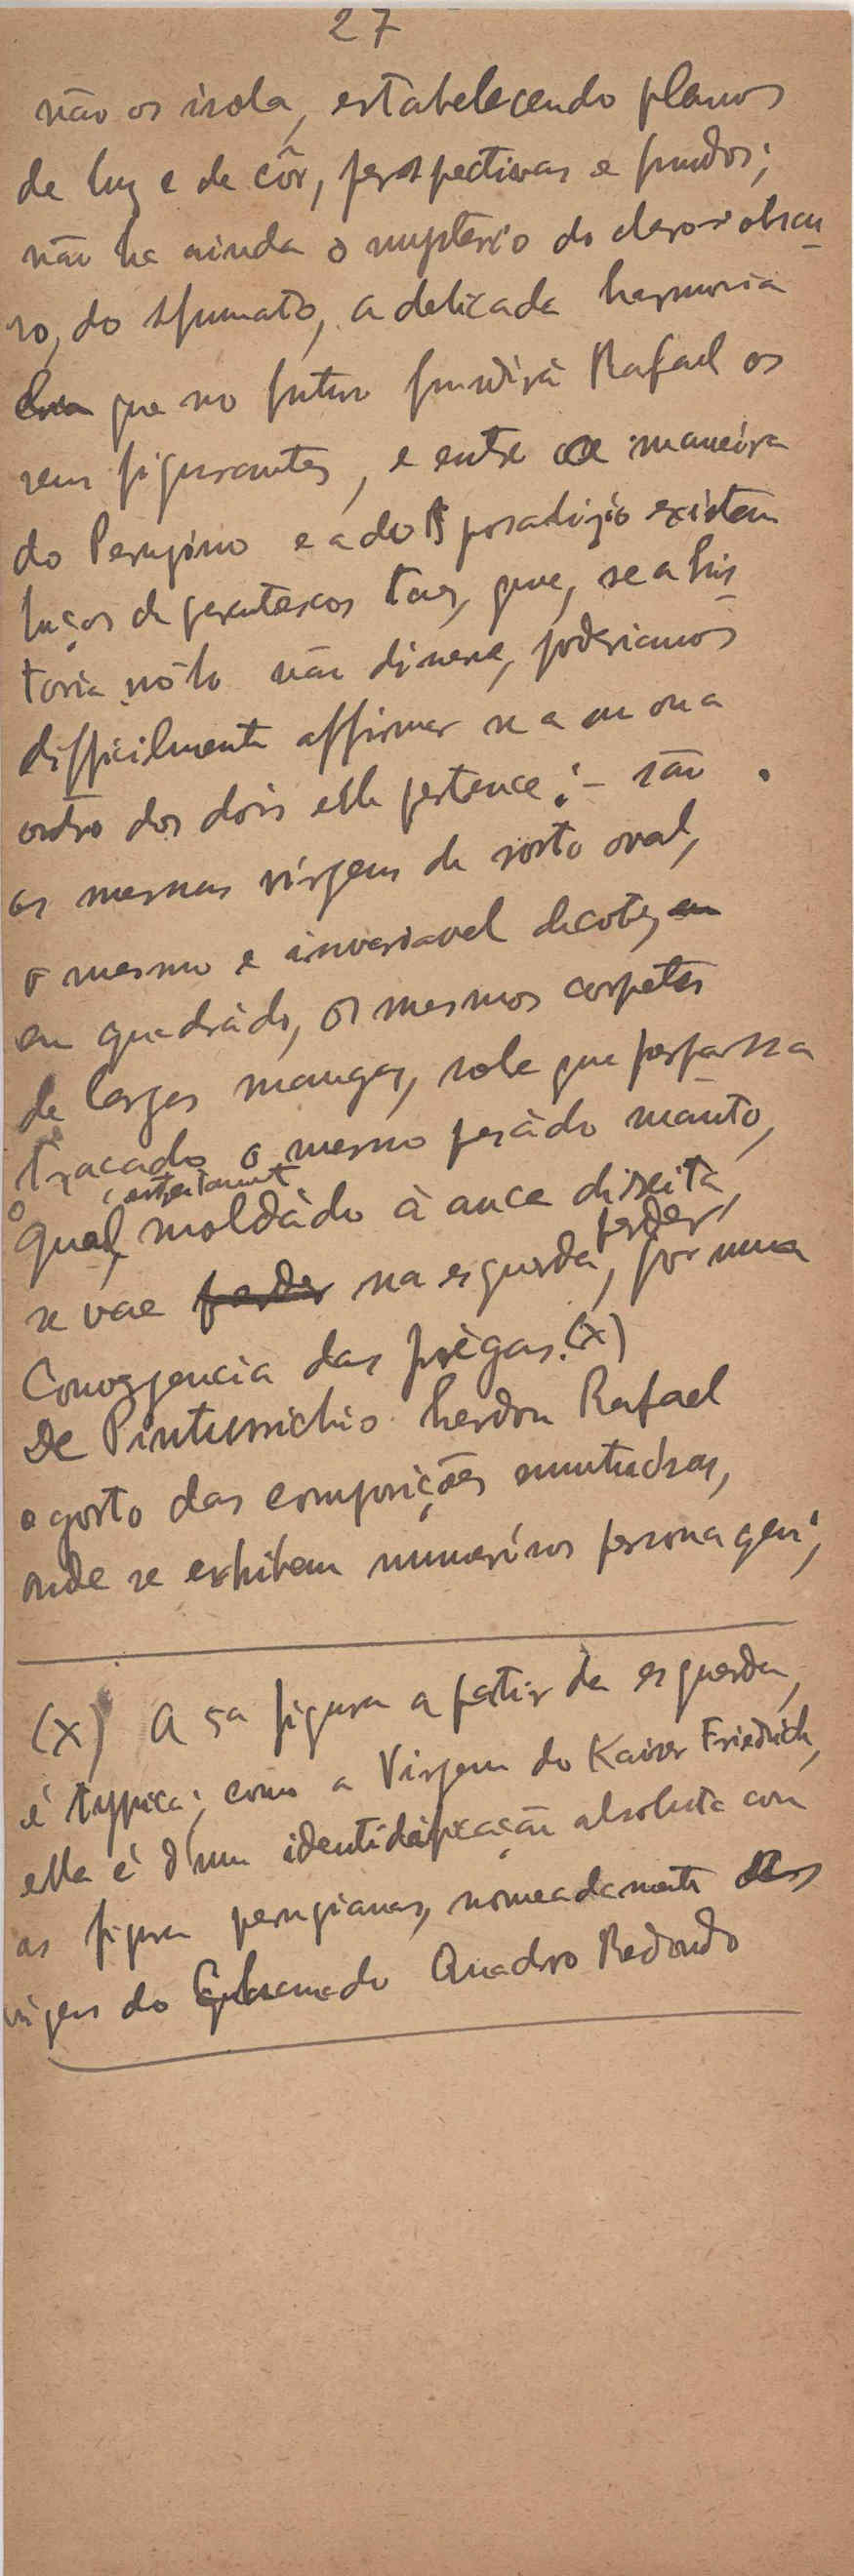 27
não os isola, estabelecendo planos
de luz e de côr, perspectivas e fundos;
não ha ainda o mysterio do claro-obscu
ro, do sfumato, a delicada harmonia
que no futuro fundirá Rafael os
seus figurantes, e entre a maneira
do Perugino e a do Sposalizio existem
laços de parentescos taes, que, se a his
toria nol-o não dissesse, poderiamos
difficilmente affirmar se a um ou a
outro dos dois elle pertence: - são
as mesmas virgens de rosto oval,
o mesmo e invariavel decote, em
em quadrádo, os mesmos corpetes
de largas mangas, sobe que perpassa
traçado o mesmo pesádo manto,
o qual, estreitamente moldádo á anca direita,
se vae perder na esquerda, perder, por uma
Convergencia das prégas. (x)
De Pinturrichio herdou Rafael
o gosto das composições muntuósas,
onde se exhibem numerósos personagens;
(x) A 5a figura a partir da esquerda,
é typica; como a Virgem do Kaiser Friedrich,
ella é d'um identidificação absoluta com
as figura peruginas, nomeadamente
virgens do Quadro Redondo